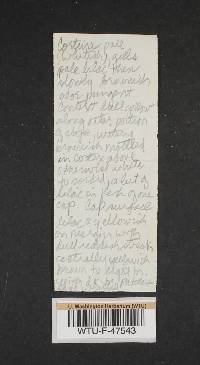 Cortina pale
(whitish), gills
pale lilac then
slowly brownish
odor pungent
Context dull yellow
along outer portion
of stipe, watery
brownish mottled
in cortex above
otherwise white
a hint of
lilac in flesh of one
cap. Cap surface
lilac & yellowish
on margin with
dull reddish streaks
centrally yellowish
brown to
U. Washington Herbarium (WTU)
WTU-F-47543